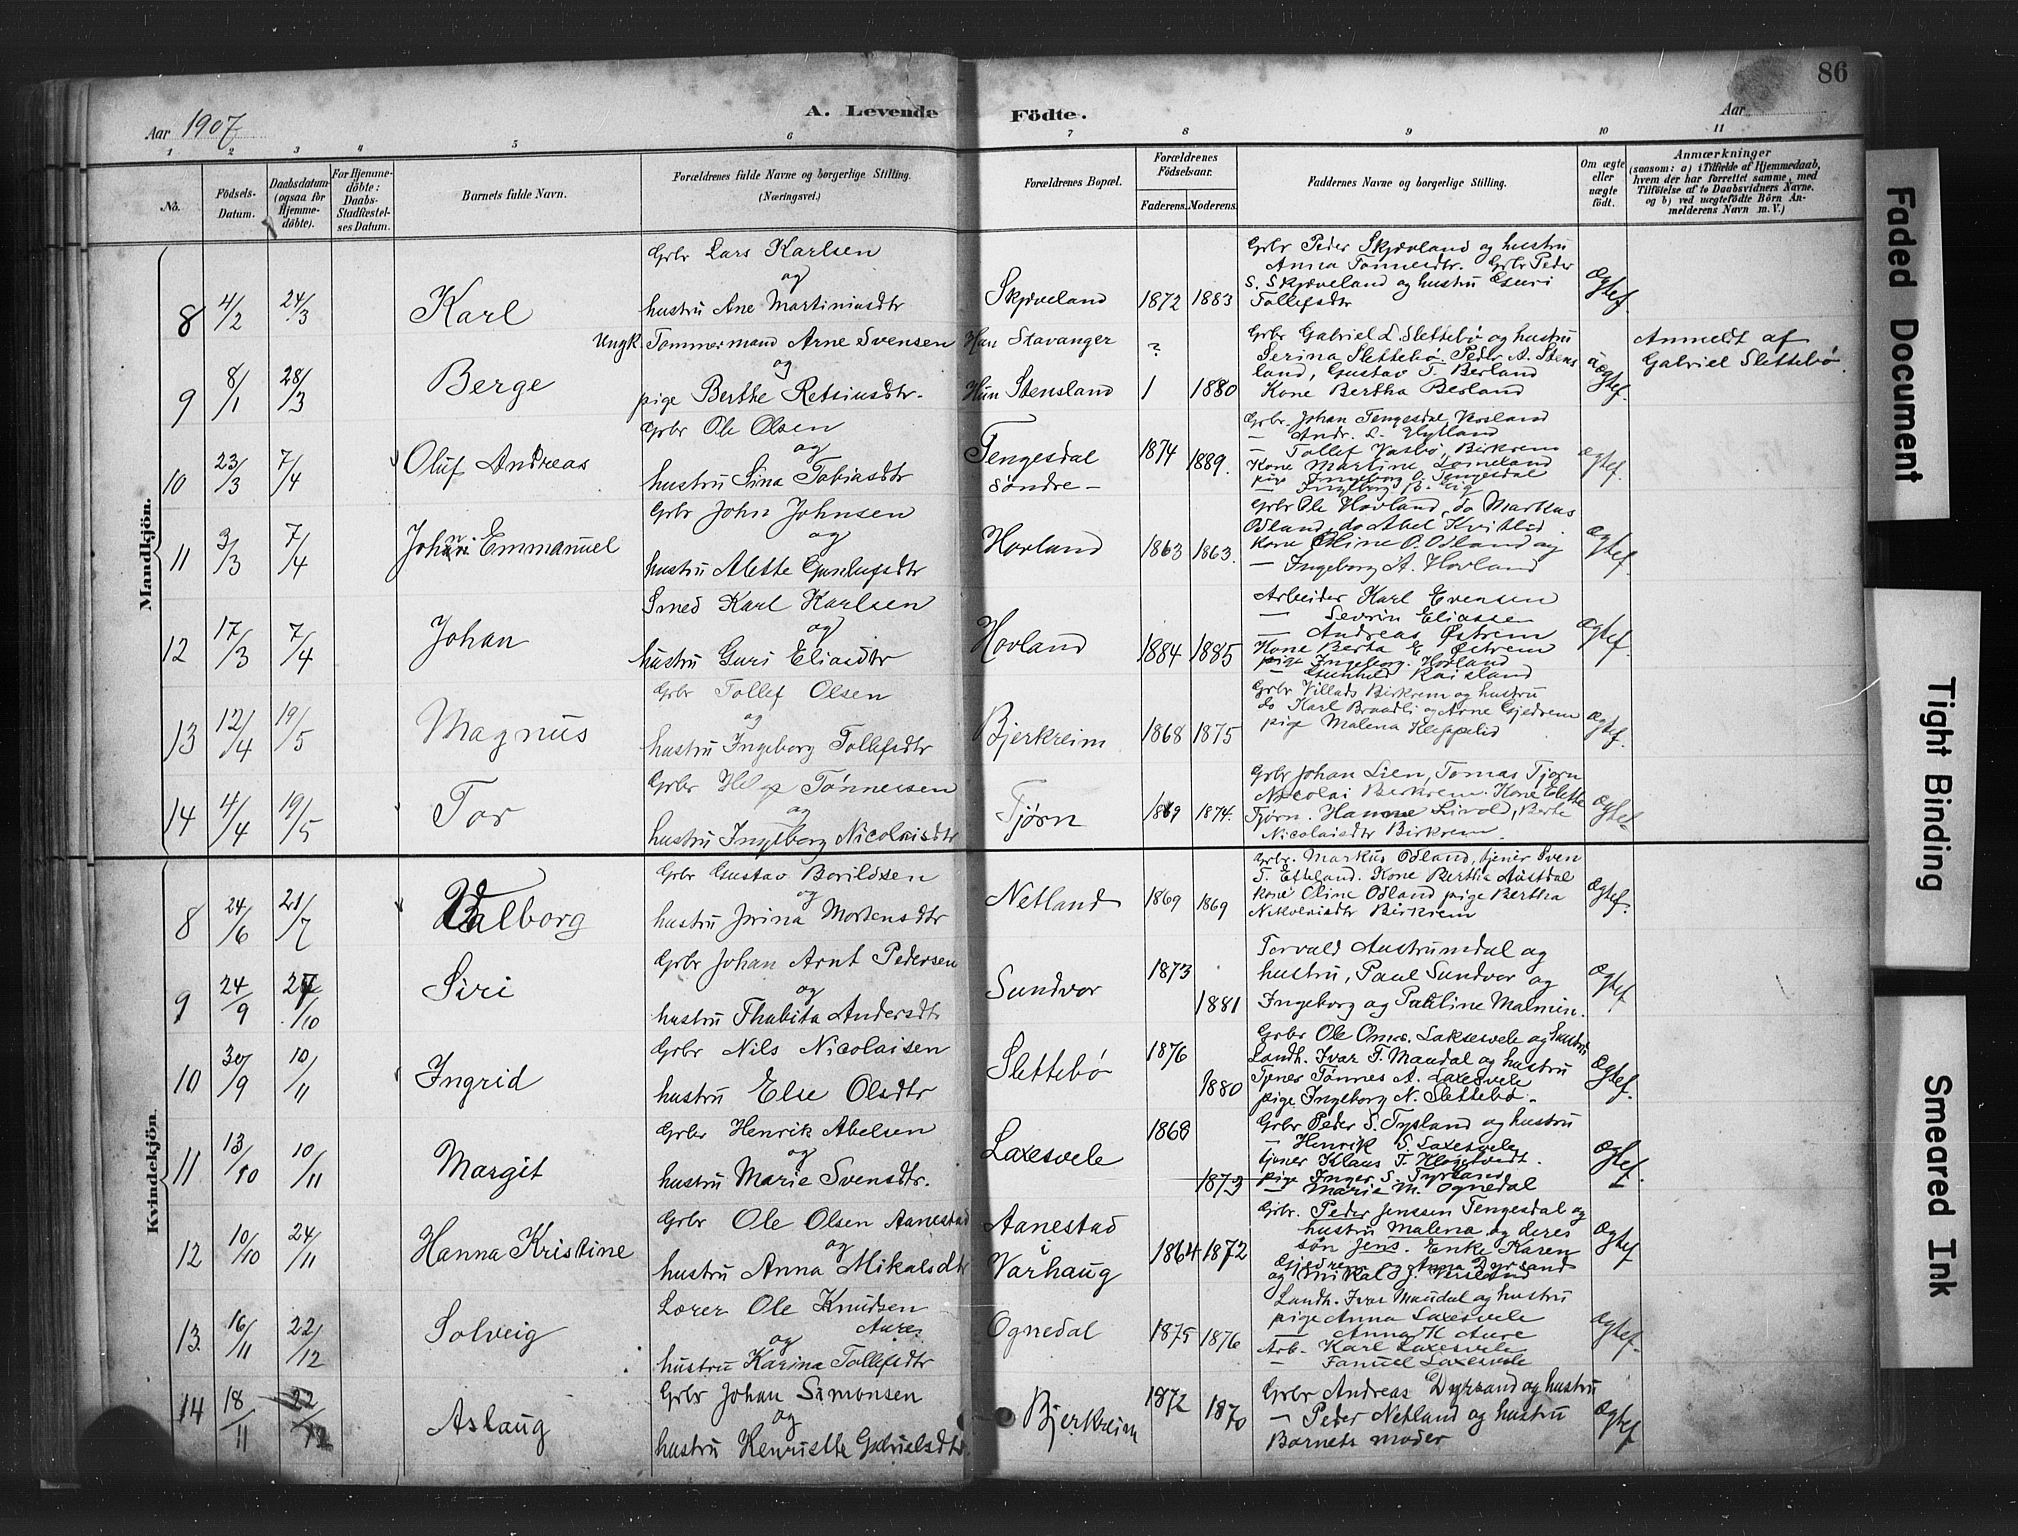 86
Aar 1907
A. Levende Födte.
Aar
1 2 3 4 5 6 7 8 9 10 11
No.
Födsels-
Datum.
Daabsdatum
(ogsaa for
Hjemme-
döbte).
For Hjemme-
döbte:
Daabs-
Stadfæstel-
ses Datum.
Barnets fulde Navn.
Forældrenes fulde Navne og borgerlige Stilling.
(Næringsvei.)
Forældrenes Bopæl.
Forældrenes
Födselsaar.
Faderens. Moderens.
Faddernes Navne og borgerlige Stilling.
Om ægte
eller
uægte
födt.
Anmærkninger
(saasom: a) i Tilfælde af Hjemmedaab,
hvem der har forrettet samme, med
Tilföielse af to Daabsvidners Navne.
og b) ved uægtefödte Börn An-
melderens Navn m. V.)
Mandkjön.
8 4/2 24/3 Karl
Grbr Lars Karlsen
og
hustru Ane Martiniusdtr
Skjæveland 1872 1883
Grbr Peder Skjævland og hustru
Anna Tønnesdtr. Grbr Peder
S. Skjæveland og hustru Guri
Tollefsdtr
Ægtef.
9 8/1 28/3 Berge
Ungk. Tømmermand Arne Svensen
og
pige Berthe Retsiusdtr.
Han Stavanger ?
Hun Stensland 1 1880
Grbr Gabriel L Slettebø og hustru
Serina Slettebø. Peder A. Stens
land, Gustav T. Berland
Kone Bertha Berland
uægtef.
Anmeldt af
Gabriel Slettebø.
10 23/3 7/4 Oluf Andreas
Grbr Ole Olsen
og
hustru Sina Tobiasdtr
Tengesdal
søndre – 1874 1889.
Grbr. Johan Tengesdal, Vasland
– Andr. L. Hylland
– Tollef Vasbø, Birkrem
Kone Martine
pige Ingeborg O. Tengesdal
– Ingeborg B. Eig
ægtef.
11 3/3 7/4 Johan Emmanuel
Grbr John Johnsen
og
hustru Alette Gunlufsdtr
Hovland 1863 1863.
Grbr Ole Hovland, do Markus
Odland, do Abel Kvitlid
Kone Oline O. Odland og
– Ingeborg A. Hovland
Ægtef.
12 17/3 7/4 Johan
Smed Karl Karlsen
og
hustru Guri Eliasdtr
Hovland 1884 1885
Arbeider Karl Evensen
– Sevrin Eliassen
– Andreas Østrem
Kone Berta E Østrem
pige Ingeborg Hovland
– Gunhild Raisland
Ægtef.
13 12/4 19/5 Magnus
Grbr Tollef Olsen
og
hustru Ingeborg Tollefsdtr
Bjerkreim 1868 1875
Grbr Villads Birkrem og hustru
do Karl Braadli og Arne Gjedrem
pige Malena Kleppelid
Ægtef.
14 4/4 19/5 Tor
Grbr Helge Tønnessen
og
hustru Ingeborg Nicolaisdtr
Tjørn 1869 1874.
Grbr Johan Lien, Tomas Tjørn
Nicolai Birkrem. Kone Elette
Tjørn. Hanne Livold, Berte
Nicolaisdtr Birkrem.
Ægtef.
Kvindekjön.
8 24/6 21/7 Valborg
Grbr Gustav Borildsen
og
hustru Jorina Mortensdtr
Netland 1869 1869
Grbr. Markus Odland, tjener Sven
T. Efteland. Kone Bertha Austdal
kone Oline Odland pige Bertha
Birkrem
Ægtef.
9 24/9 27/10 Siri
Grbr Johan Arnt Pedersen
og
hustru Thabita Andersdtr
Sundvor 1873 1881
Torvald Austrumdal og
hustru, Paul Sundvor og
Ingeborg og Pauline Malmin.
Ægtef
10 30/9 10/11 Ingrid
Grbr Nils Nicolaisen
hustru Else Olsdtr
Slettebø 1876 1880
Grbr Ole Omu. Laksesvele og hustru
Landh. Ivar T. Maudal og hustru
Tjener Tønnes A. Laxesvele
pige Ingeborg N. Slettebø.
Ægtef.
11 13/10 10/11 Margit
Grbr Henrik Abelsen
og
hustru Marie Svensdtr.
Laxesvele 1868 1873
Grbr Peder S. Tysland og hustru
– Henrik S. Laxesvele
tjener Klaus T. Kløgtvedt.
pige Inger S. Tysland
– Marie M. Ognedal
Ægtef.
12 10/10 24/11 Hanna Kristine
Grbr Ole Olsen Aanestad
og
hustru Anna Mikalsdtr
Aanestad
i
Varhaug 1864 1872
Grbr. Peder Jenssen Tengesdal og
hustru Malena og deres
søn Jens. Enke Karen
Gjedrem og Anna Dyrsand
og Mikal J. Vasland
Ægtef
13. 16/11 22/12 Solveig
Lærer Ole Knudsen
Aure
og
hustru Karina Tollefsdtr
Ognedal 1875 1876
Landh. Ivar Maudal og hustru
pige Anna Laxesvele
– Anna K Aure
Arb. Karl Laxesvele
– Fanuel Laxesvele
Ægtef.
14 18/11 22/12 Aslaug
Grbr Johan Simonsen
og
hustru Henriette Gabrielsdtr.
Bjerkreim 1872 1870
Grbr Andreas Dyrsand og hustru
– Peder Netland og hustru
Barnets moder
Ægtef
Faded Document
Tight Binding
Smeared Ink